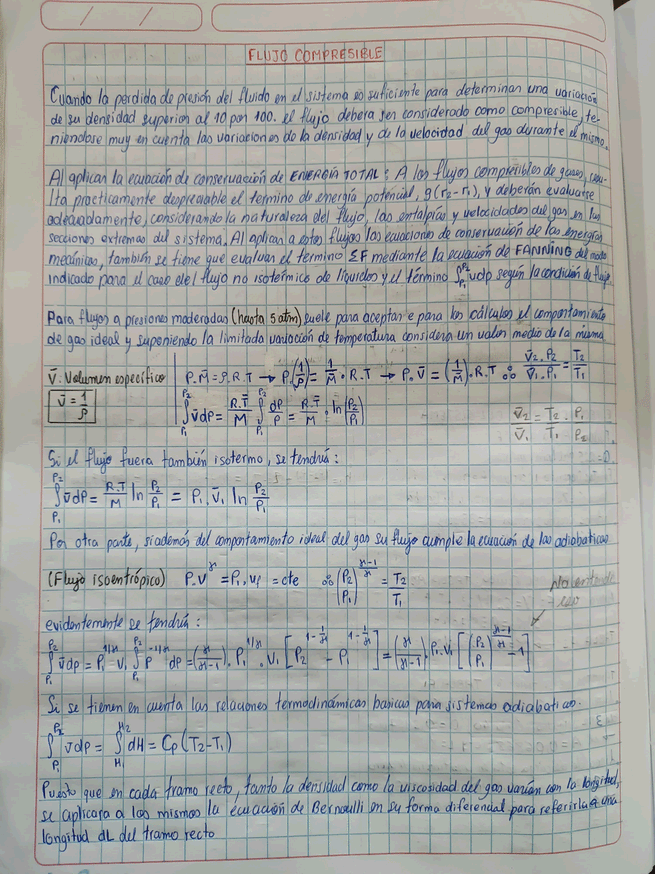 FLUJO COMPRESIBLE
Cuando la perdida de presión del fluido en el sistema es suficiente para determinar una variación
de su densidad superior al 10 por 100. el flujo debera ser considerado como compresible, te-
niendose muy en cuenta las variaciones de la densidad y de la velocidad del gas durante el mismo.
Al aplicar la ecuación de conservación de ENERGÍA TOTAL: A los flujos compresibles de gases, resu-
lta practicamente despreciable el termino de energía potencial, g(r₂-r₁), y deberán evaluarse
adecuadamente, considerando la naturaleza del flujo, las entalpías y velocidades del gas en las
secciones extremas del sistema. Al aplicar a estos flujos las ecuaciones de conservación de las energías
mecánicas, también se tiene que evaluar el termino ΣF mediante la ecuación de FANNING del modo
indicado para el caso del flujo no isotérmico de líquidos y el término ∫P₁^P₂ vdp según la condición de flujo
Para flujos a presiones moderadas (hasta 5 atm) suele para aceptar e para los cálculos el comportamiento
de gas ideal y suponiendo la limitada variación de temperatura considera un valor medio de la misma
V̄. Volumen específico | P.M̄=ρ.R.T → P.(1/ρ)=1/M̄.R.T → P.V̄=(1/M̄).R.T ∴ V̄₂.P₂/V̄₁.P₁=T₂/T₁
V̄=1/ρ | ∫P₁^P₂ v̄dp=R.T̄/M ∫P₁^P₂ dP/P=R.T̄/M.ln(P₂/P₁)
V̄₂/V̄₁=T₂/T₁.P₁/P₂
Si el flujo fuera también isotermo, se tendrá:
∫P₁^P₂ v̄dP=R.T/M ln P₂/P₁=P₁.V̄₁ ln P₂/P₁
Por otra parte, si además del comportamiento ideal del gas su flujo cumple la ecuación de las adiabaticas
(Flujo isoentrópico) P.V^γ=P₁.v₁^γ=cte ∴(P₂/P₁)^(γ-1/γ)=T₂/T₁
No entendi
evidentemente se tendrá:
∫P₁^P₂ v̄dp=P₁^(1/γ) V₁ ∫P₁^P₂ P^(-1/γ) dP=(γ/γ-1).P₁^(1/γ).V₁[P₂^(1-1/γ)-P₁^(1-1/γ)]=(γ/γ-1).P₁.V₁[(P₂/P₁)^(γ-1/γ)-1]
Si se tienen en cuenta las relaciones termodinámicas basicas para sistemas adiabatico.
∫P₁^P₂ v̄dp=∫H₁^H₂ dH=Cp(T₂-T₁)
Puesto que en cada tramo recto, tanto la densidad como la viscosidad del gas varían con la longitud,
se aplicara a los mismos la ecuación de Bernoulli en su forma diferencial para referirla a una
longitud dL del tramo recto